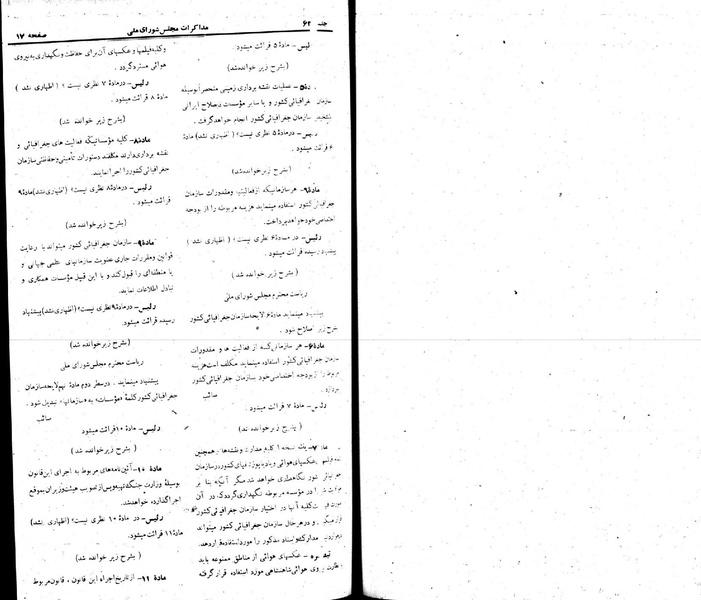 جلسه ۶۲
مذاکرات مجلس شورای ملی
صفحه ۱۷
رئیس- مادهٔ ۵ قرائت میشود.
(بشرح زیر خوانده شد)
عملیات نقشه برداری زمینی منحصراً بوسیله
سازمان جغرافیائی کشور و یا سایر مؤسسات ذیصلاح ایرانی
بتشخیص سازمان جغرافیائی کشور انجام خواهد گرفت.
رئیس- در مادهٔ ۵ نظری نیست؟ (اظهاری نشد) مادهٔ
۶ قرائت میشود.
(بشرح زیر خوانده شد)
مادهٔ ۶- هر سازمانیکه از فعالیتها و مقدورات سازمان
جغرافیائی کشور استفاده مینماید هزینه مربوطه را از بودجه
اختصاصی خود خواهد پرداخت.
رئیس- در مادهٔ ۶ نظری نیست؟ (اظهاری نشد)
پیشنهاد رسیده قرائت میشود.
(بشرح زیر خوانده شد)
ریاست محترم مجلس شورای ملی
پیشنهاد مینماید مادهٔ ۶ لایحه سازمان جغرافیائی کشور
بشرح زیر اصلاح شود.
مادهٔ ۶- هر سازمانی که از فعالیت ها و مقدورات
سازمان جغرافیائی کشور استفاده مینماید مکلف است هزینه
مربوط را از بودجه اختصاصی خود بسازمان جغرافیائی کشور
بپردازد.
صائب
رئیس- مادهٔ ۷ قرائت میشود.
(بشرح زیر خوانده شد)
نسخه از کلیه مدارک و نقشه‌ها و همچنین
عکسهای هوائی کشور در سازمان
جغرافیائی کشور نگاهداری خواهد شد مگر آنکه بنا بر
در مؤسسه مربوطه نگهداری گردد که در آن
صورت کلیه آنها در اختیار سازمان جغرافیائی کشور
و در هر حال سازمان جغرافیائی کشور میتواند
مدارک و اسناد مذکور را مورد استفاده قرار دهد.
تبصره- عکسهای هوائی از مناطق ممنوعه باید
نیروی هوائی شاهنشاهی مورد استفاده قرار گرفته
و کلیه فیلمها و عکسهای آن برای حفاظت و نگهداری به نیروی
هوائی مسترد گردد.
رئیس- در مادهٔ ۷ نظری نیست؟ (اظهاری نشد)
مادهٔ ۸ قرائت میشود.
(بشرح زیر خوانده شد)
مادهٔ ۸- کلیه مؤسساتیکه فعالیت های جغرافیائی و
نقشه برداری دارند مکلفند دستورات تأمینی و حفاظتی سازمان
جغرافیائی کشور را اجرا نمایند.
رئیس- در مادهٔ ۸ نظری نیست؟ (اظهاری نشد) مادهٔ ۹
قرائت میشود.
(بشرح زیر خوانده شد)
مادهٔ ۹- سازمان جغرافیائی کشور میتواند با رعایت
قوانین و مقررات جاری عضویت سازمانهای علمی جهانی و
یا منطقه‌ای را قبول کند و با این قبیل مؤسسات همکاری و
تبادل اطلاعات نماید.
رئیس- در مادهٔ ۹ نظری نیست؟ (اظهاری نشد) پیشنهاد
رسیده قرائت میشود.
(بشرح زیر خوانده شد)
ریاست محترم مجلس شورای ملی
پیشنهاد مینماید. در سطر دوم مادهٔ نهم لایحه سازمان
جغرافیائی کشور کلمهٔ «مؤسسات» به «سازمانها» تبدیل شود.
صائب
رئیس- مادهٔ ۱۰ قرائت میشود
(بشرح زیر خوانده شد)
مادهٔ ۱۰- آئین‌نامه‌های مربوط به اجرای این قانون
بوسیلهٔ وزارت جنگ تهیه و پس از تصویب هیئت وزیران بموقع
اجرا گذارده خواهد شد.
رئیس- در مادهٔ ۱۰ نظری نیست؟ (اظهاری نشد)
مادهٔ ۱۱ قرائت میشود.
(بشرح زیر خوانده شد)
مادهٔ ۱۱- از تاریخ اجراء این قانون، قانون مربوط